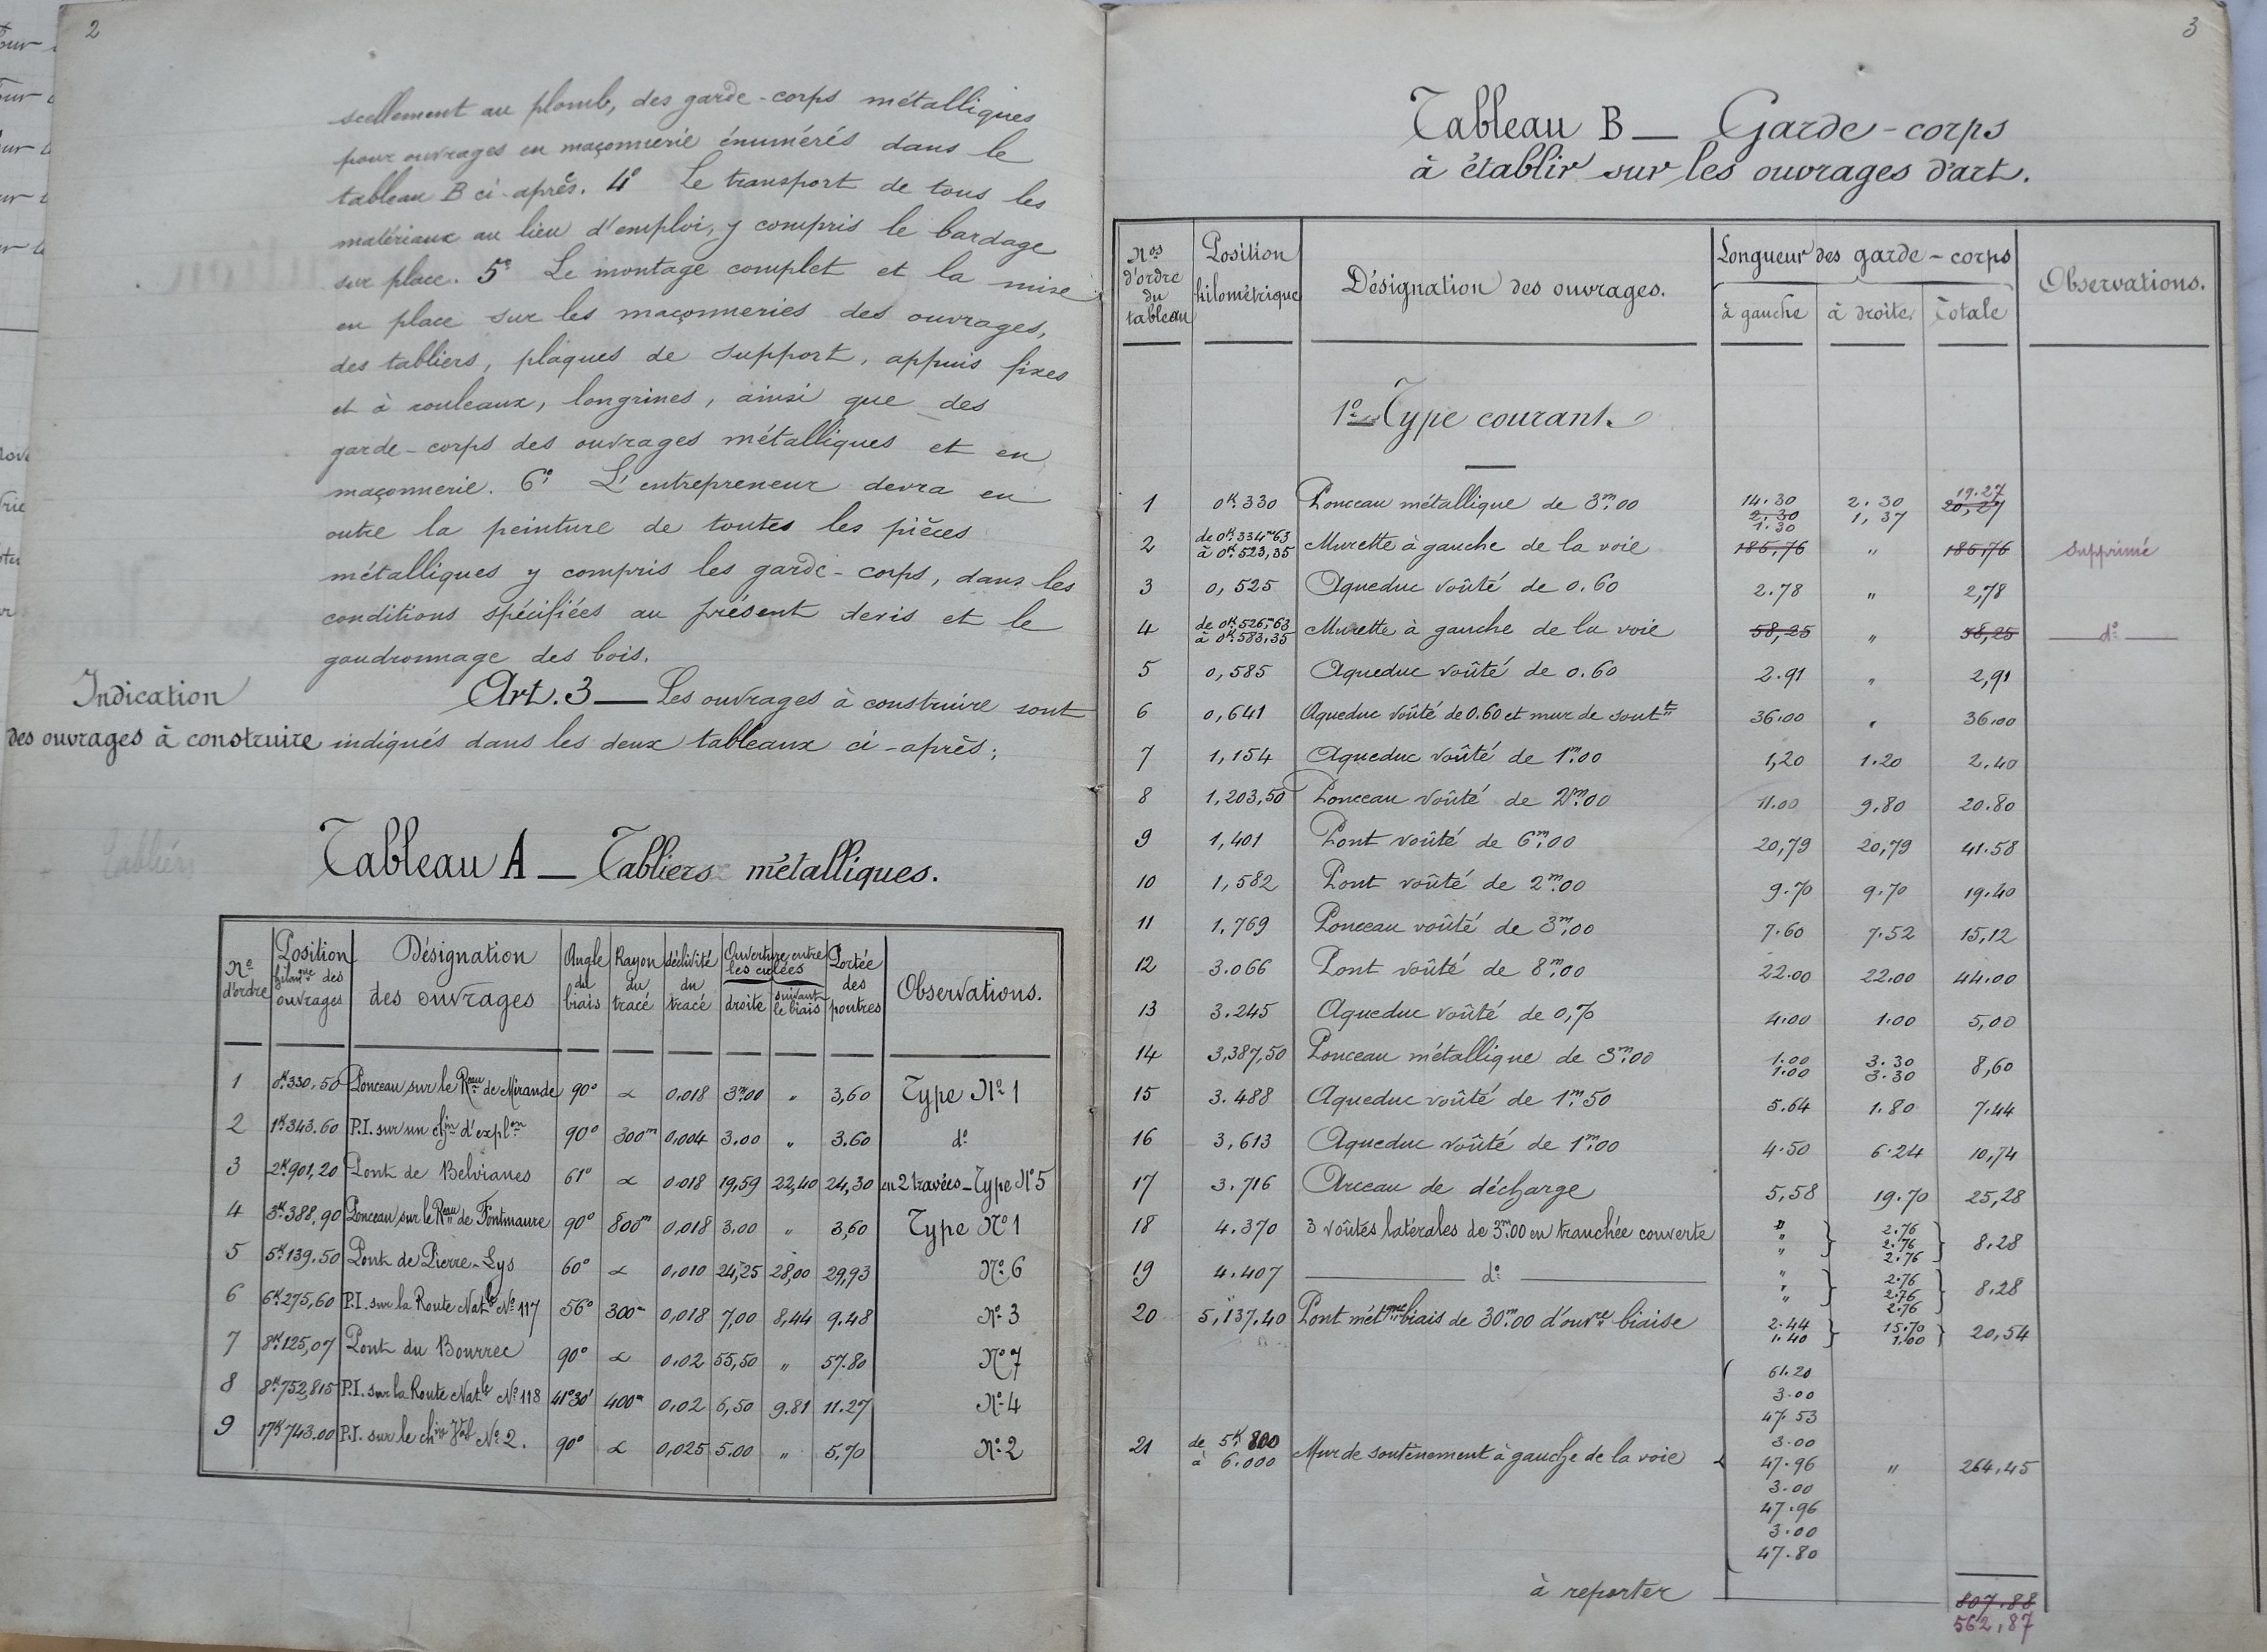 2
scellement au plomb, des garde-corps métalliques
pour ouvrages en maçonnerie énumérés dans le
tableau B ci-après. 4° Le transport de tous les
matériaux au lieu d'emploi, y compris le bardage
sur place. 5° Le montage complet et la mise
en place sur les maçonneries des ouvrages,
des tabliers, plaques de support, appuis fixes
et à rouleaux, longrines, ainsi que des
garde-corps des ouvrages métalliques et en
maçonnerie. 6° L'entrepreneur devra en
outre la peinture de toutes les pièces
métalliques y compris les garde-corps, dans les
conditions spécifiées au présent devis et le
goudronnage des bois.
Indication
des ouvrages à construire
Art. 3 — Les ouvrages à construire sont
indiqués dans les deux tableaux ci-après:
Tableau A — Tabliers métalliques.
N° d'ordre | Position kilom^que des ouvrages | Désignation des ouvrages | Angle du biais | Rayon du tracé | déclivité du tracé | Ouverture entre les culées droite | suivant le biais | Portée des poutres | Observations.
1 | 0k.330,50 | Ponceau sur le R^eau de Mirande | 90° | α | 0.018 | 3m.00 | " | 3,60 | Type N° 1
2 | 1k343.60 | P.I. sur un ch^in d'expl^on | 90° | 300m | 0,004 | 3.00 | " | 3.60 | d°
3 | 2k.901,20 | Pont de Belvianes | 61° | α | 0.018 | 19,59 | 22,40 | 24,30 | en 2 travées - Type N° 5
4 | 3k.388,90 | Ponceau sur le R^eau de Fontmaure | 90° | 800m | 0,018 | 3.00 | " | 3,60 | Type N° 1
5 | 5k139.50 | Pont de Pierre-Lys | 60° | α | 0,010 | 24,25 | 28,00 | 29,93 | N° 6
6 | 6k275,60 | P.I. sur la Route Nat^le N° 117 | 56° | 300m | 0,018 | 7,00 | 8,44 | 9.48 | N° 3
7 | 8k125,07 | Pont du Bourrec | 90° | α | 0.02 | 55,50 | " | 57.80 | N° 7
8 | 8k752,815 | P.I. sur la Route Nat^le N° 118 | 41°30' | 400m | 0.02 | 6,50 | 9.81 | 11.27 | N° 4
9 | 17k743.00 | P.I. sur le ch^in N° 2. | 90° | α | 0,025 | 5.00 | " | 5.70 | N° 2
3
Tableau B — Garde-corps
à établir sur les ouvrages d'art.
N^os d'ordre du tableau | Position kilométrique | Désignation des ouvrages. | Longueur des garde-corps à gauche | à droite. | Totale | Observations.
1° Type courant.
1 | 0k.330 | Ponceau métallique de 3m.00 | 14.30 2.30 1.30 | 2.30 1,37 | 19.27 20,27
2 | de 0k.334m63 à 0k.523,35 | Murette à gauche de la voie | 186,76 | " | 186,76 | Supprimé
3 | 0,525 | Aqueduc voûté de 0.60 | 2.78 | " | 2,78
4 | de 0k.526m63 à 0k.583,35 | Murette à gauche de la voie | 58,25 | " | 58,25 | d°
5 | 0,585 | Aqueduc voûté de 0.60 | 2.91 | " | 2,91
6 | 0,641 | Aqueduc voûté de 0.60 et mur de sout^t | 36.00 | " | 36.00
7 | 1,154 | Aqueduc voûté de 1m.00 | 1,20 | 1.20 | 2.40
8 | 1,203,50 | Ponceau voûté de 2m.00 | 11.00 | 9.80 | 20.80
9 | 1,401 | Pont voûté de 6m.00 | 20,79 | 20,79 | 41.58
10 | 1,582 | Pont voûté de 2m.00 | 9.70 | 9.70 | 19.40
11 | 1.769 | Ponceau voûté de 3m.00 | 7.60 | 7.52 | 15,12
12 | 3.066 | Pont voûté de 8m.00 | 22.00 | 22.00 | 44.00
13 | 3.245 | Aqueduc voûté de 0,70 | 4.00 | 1.00 | 5,00
14 | 3,387,50 | Ponceau métallique de 3m.00 | 1.00 1.00 | 3.30 3.30 | 8,60
15 | 3.488 | Aqueduc voûté de 1m.50 | 5.64 | 1.80 | 7.44
16 | 3,613 | Aqueduc voûté de 1m.00 | 4.50 | 6.24 | 10,74
17 | 3.716 | Arceau de décharge | 5,58 | 19.70 | 25,28
18 | 4.370 | 3 voûtes latérales de 3m.00 en tranchée couverte | " " " | 2.76 2.76 2.76 | 8.28
19 | 4.407 | d° | " " " | 2.76 2.76 2.76 | 8.28
20 | 5,137.40 | Pont mét^que biais de 30m.00 d'ouv^re biaise | 2.44 1.40 | 15.70 1.00 | 20,54
21 | de 5k.800 à 6.000 | Mur de soutènement à gauche de la voie | 61.20 3.00 47.53 3.00 47.96 3.00 47.96 3.00 47.80 | " | 264,45
à reporter | 807.88
562,87